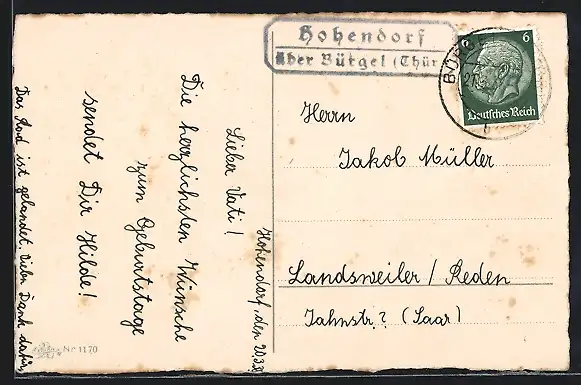 Hohendorf
über Bürgel (Thür.
6
Deutsches Reich
Hohendorf, den 20.3.
Lieber Vati!
Die herzlichsten Wünsche
zum Geburtstage
sendet Dir Hilde!
Das Rad ist gelandet. Vielen Dank dafür,
Herrn
Jakob Müller
Landsweiler / Reden
Jahnstr.? (Saar)
Nr 1170